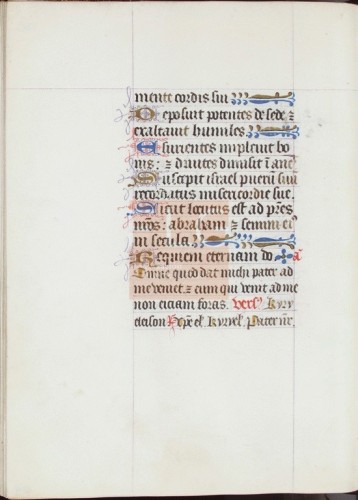 mente cordis sui
Deposuit potentes de sede ⁊
exaltauit humiles
Esurientes impleuit bo
nis: ⁊ diuites dimisit īane
Suscepit israel puerū suū
recordatus misericordie sue
Sicut locutus est ad p̄res
nr̄os: abraham ⁊ semini ei᷒
in secula
Requiem eternam do
Omne quod dat michi pater ad
me veniet ⁊ eum qui venit ad me
non eiciam foras. vers᷒ Kyry
eleison Xp̄e el. Kyryel. Pater nr̄.